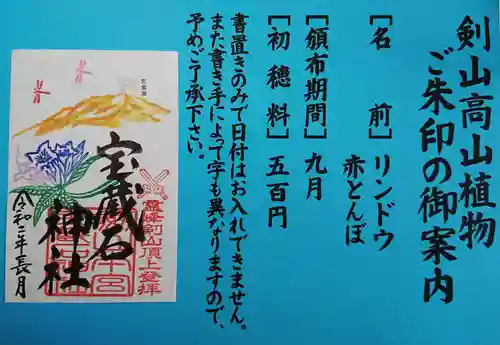 剣山高山植物
ご朱印の御案内
［名　前］リンドウ
赤とんぼ
［頒布期間］九月
［初穂料］五百円
書置きのみで日付はお入れできません。
また書き手によって字も異なりますので、
予めご了承下さい。
霊峰剣山頂上登拝
宝蔵石
神社
令和二年長月